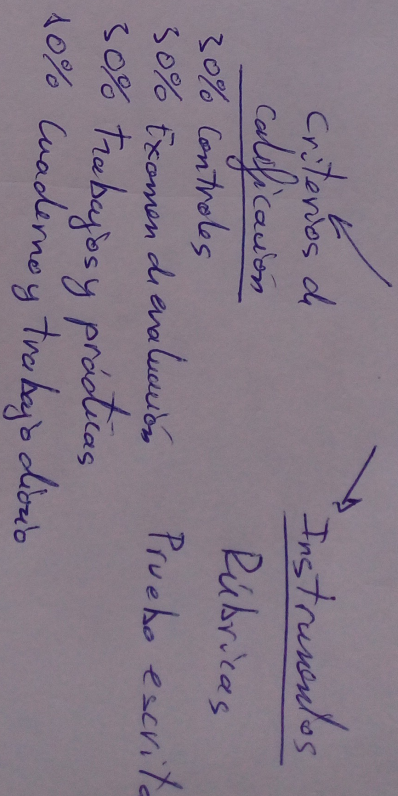 Criterios de
calificación
30% Controles
30% Examen de evaluación
30% trabajos y prácticas
10% Cuaderno y trabajo diario
Instrumentos
Rúbricas
Prueba escrita